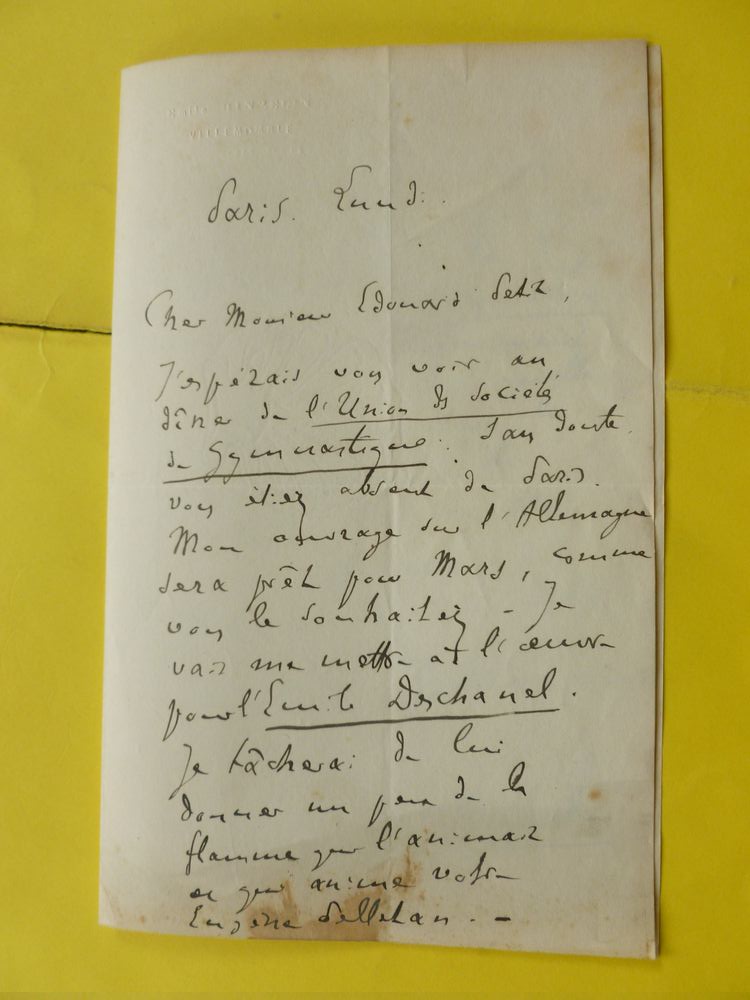 VILLEMOMBLE
Paris. Lundi.
Cher Monsieur Edouard Petit,
J'espérais vous voir au
dîner de l'Union des Sociétés
de Gymnastique. Sans doute
vous étiez absent de Paris.
Mon ouvrage sur l'Allemagne
sera prêt pour Mars, comme
vous le souhaitez - Je
vais me mettre à l'œuvre
pour l'Emile Deschanel.
Je tâcherai de lui
donner un peu de la
flamme qui l'animait
et qui anime votre
Eugène Pelletan. -